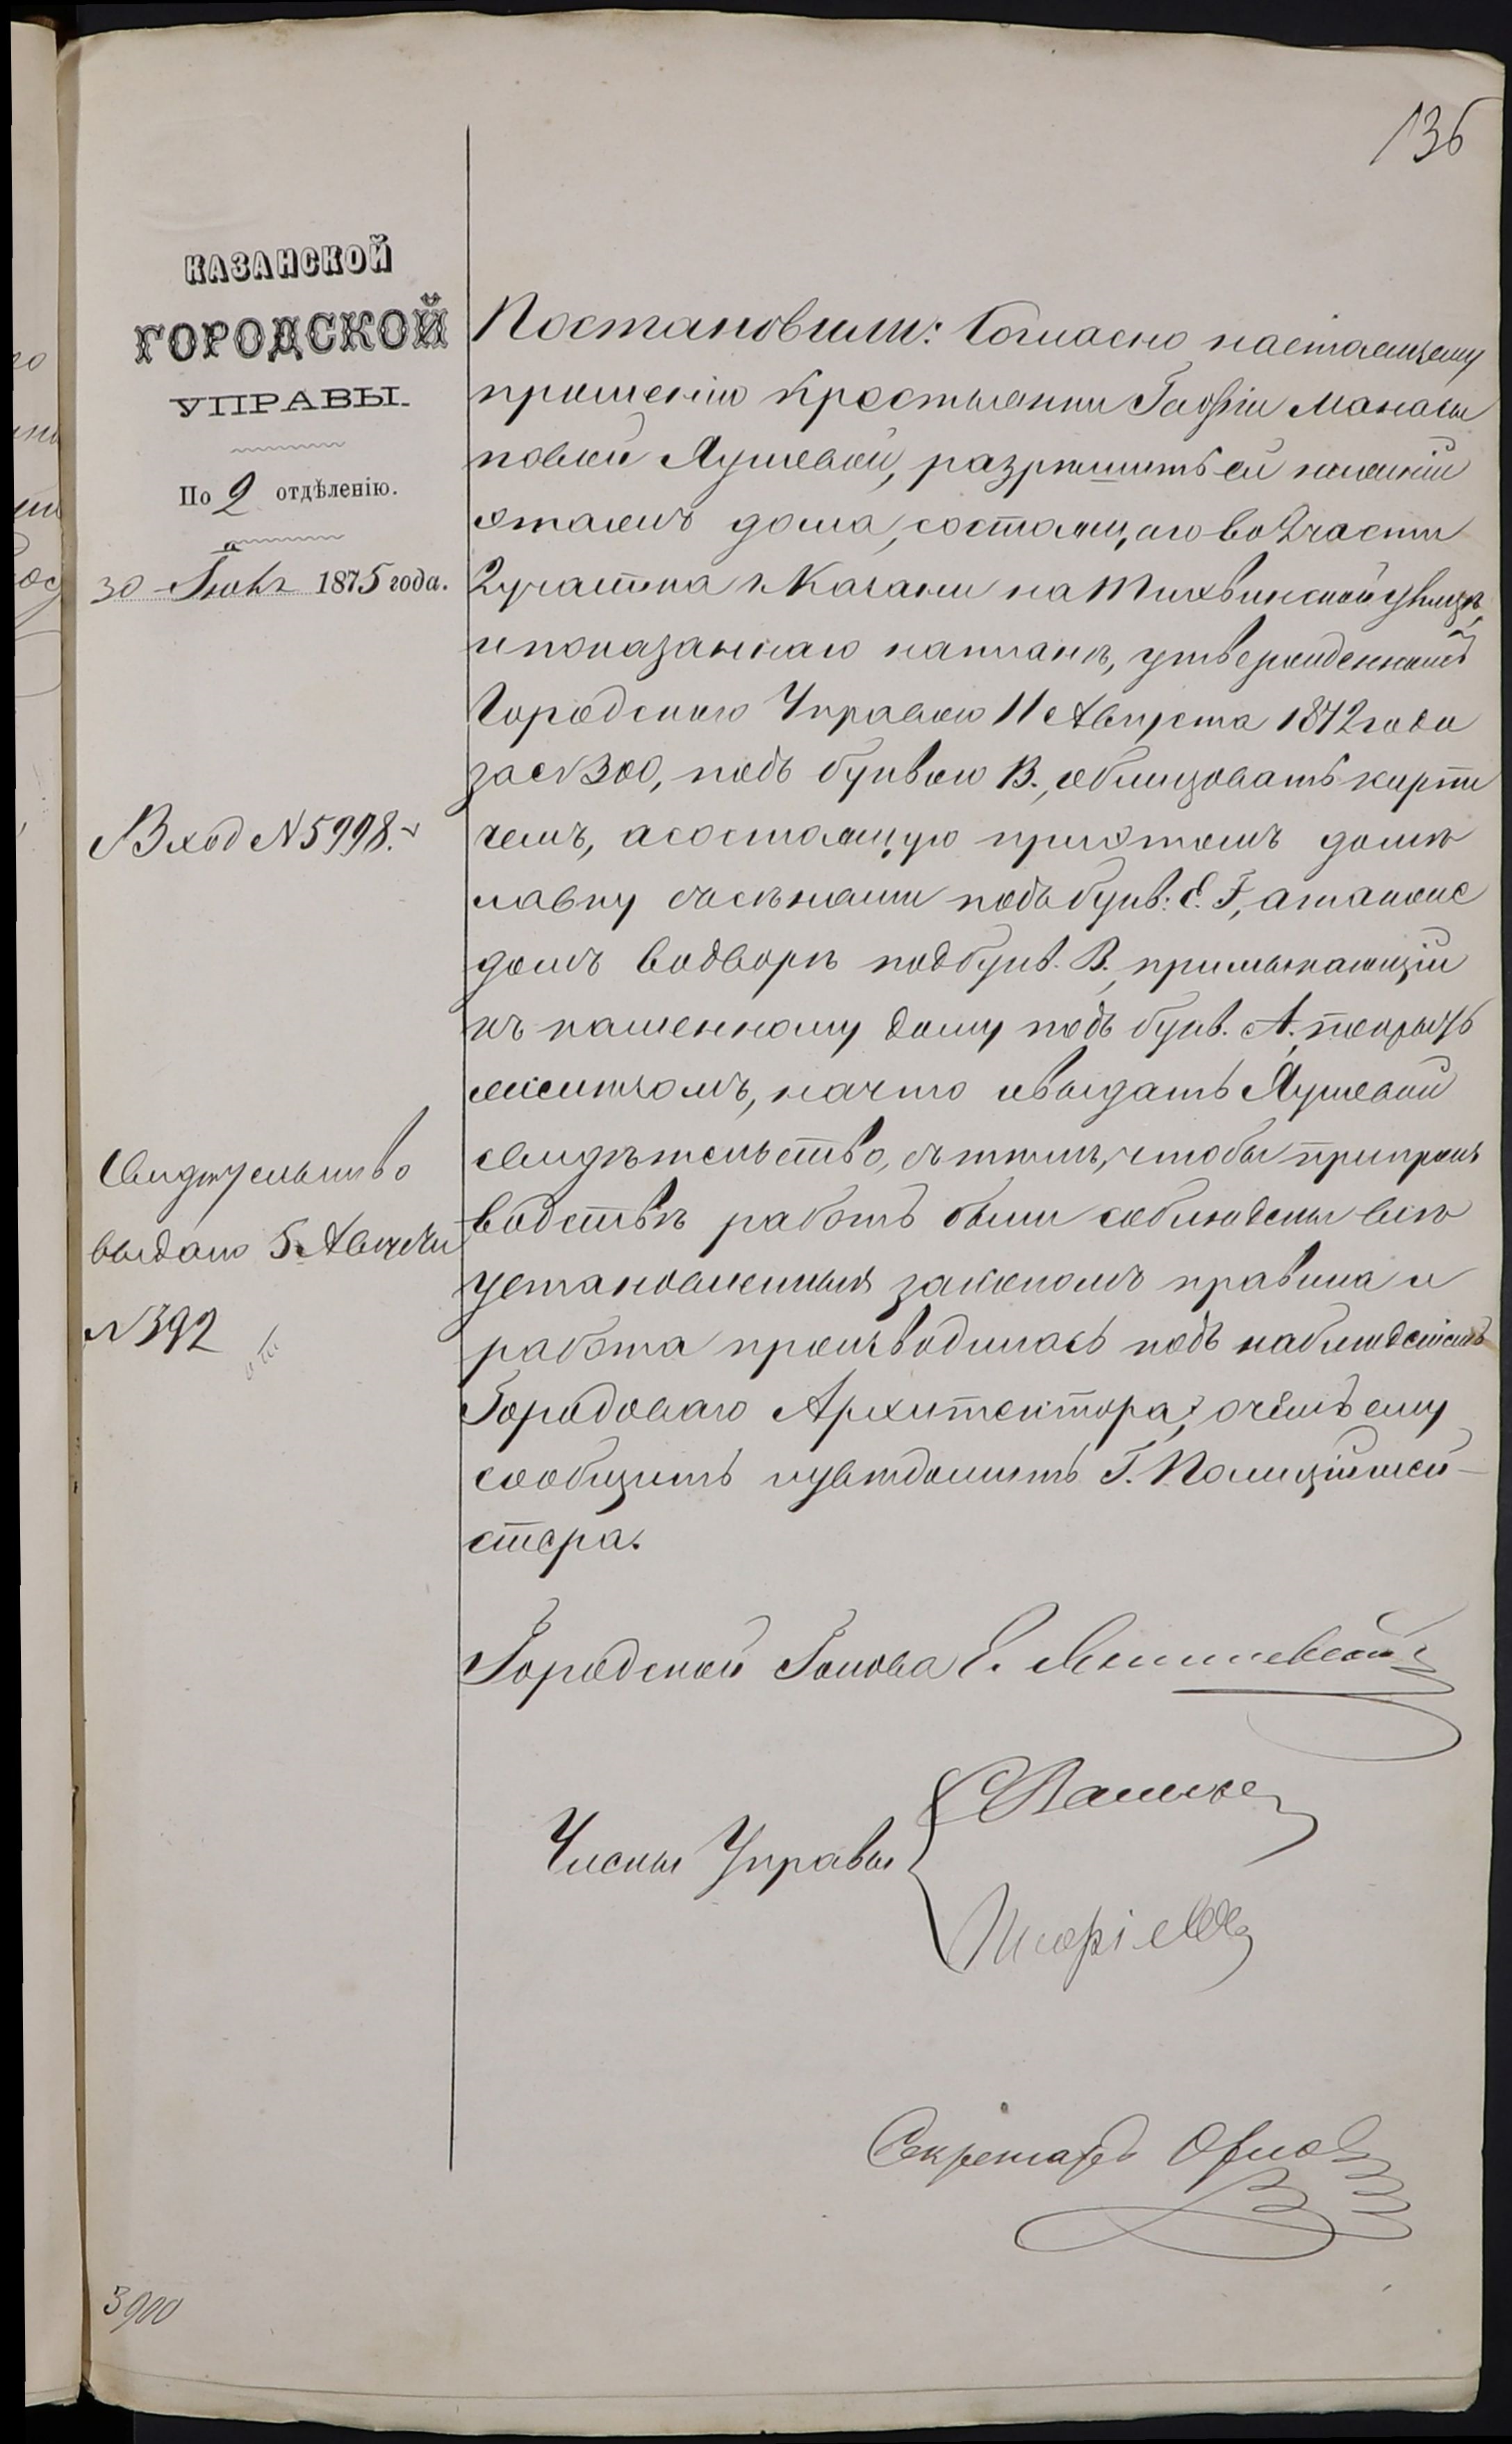 136
КАЗАНСКОЙ
ГОРОДСКОЙ
УПРАВЫ.
По 2 отдѣленію.
30 Іюля 1875 года.
Вход № 5998.
Свидѣтельство
выдано 5 Августа
№ 392
Постановили: Согласно настоящему
прошенію крестьянки
Яушевой, разрѣшить ей нижній
этажъ дома, состоящаго во 2 части
2 участка г. Казани на Тихвинской улицѣ,
и показаннаго на планѣ, утвержденномъ
Городскою Управою 11 Августа 1872 года
за № 300, подъ буквою В., облицовать кирпи
чемъ, а состоящую при этомъ домѣ
лавку съ сѣнями подъ букв: Е. F, а также
домъ во дворѣ под букв. В., примыкающій
къ каменному дому подъ букв. А., покрыть
желѣзомъ, на что и выдать Яушевой
свидѣтельство, съ тѣмъ, чтобы при произ
водствѣ работъ были соблюдены всѣ
установленныя закономъ правила и
работа производилась подъ наблюденіемъ
Городоваго Архитектора; о чемъ ему
сообщить и увѣдомить Г. Полиціймей-
стера.
Городской Голова Е.
Члены Управы
Секретарь Орлов
3900